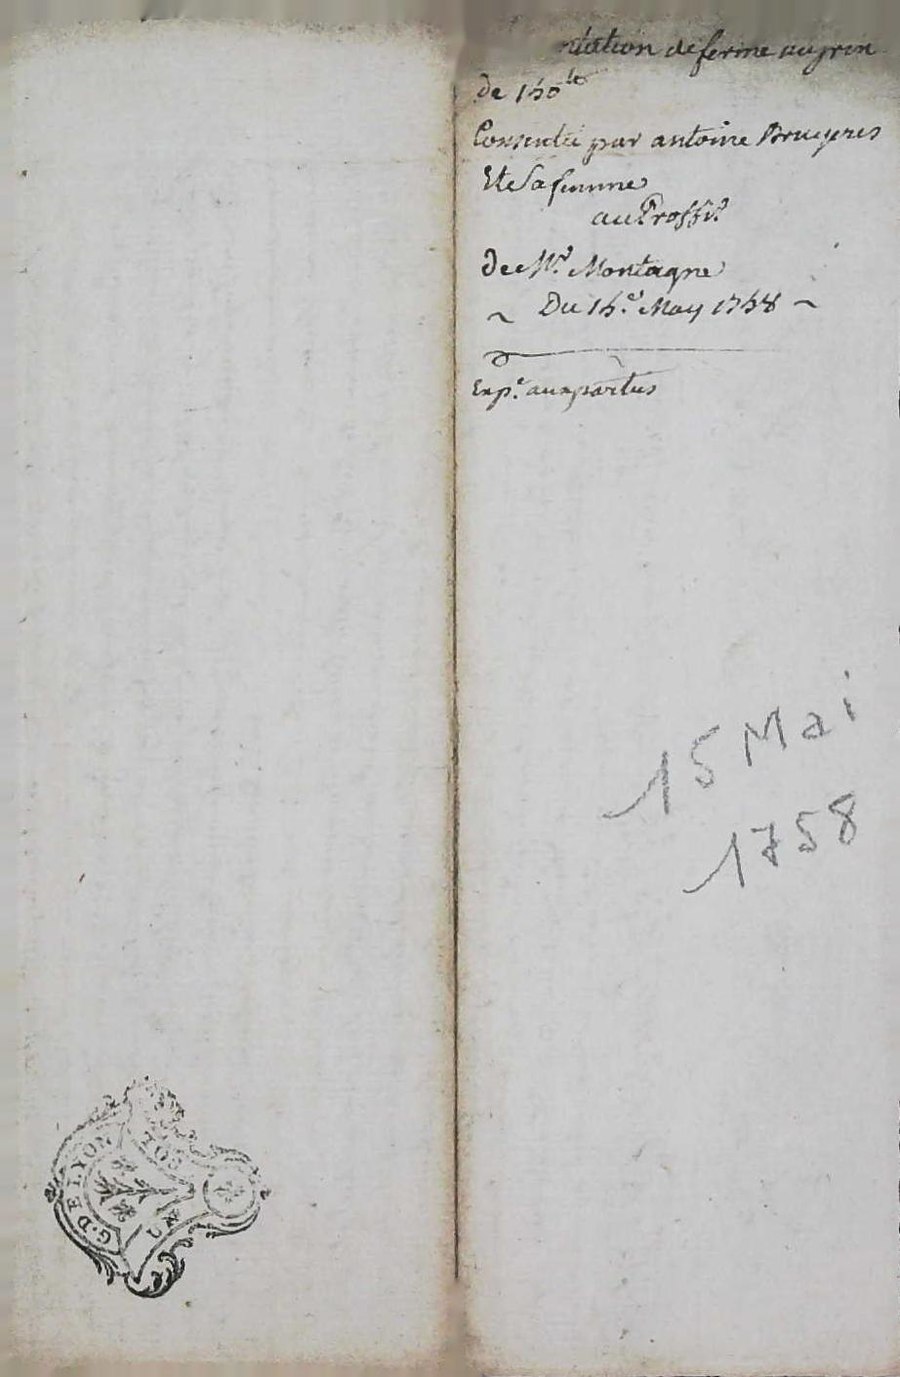 de ferme au prix
de 150 lt
Consentie par antoine Bruyeres
Et Sa femme
au Proffit
de Mr. Montagne
~ Du 15e. May 1758 ~
Exp.e aux parties
15 Mai
1758
G. DE LYON
SOL